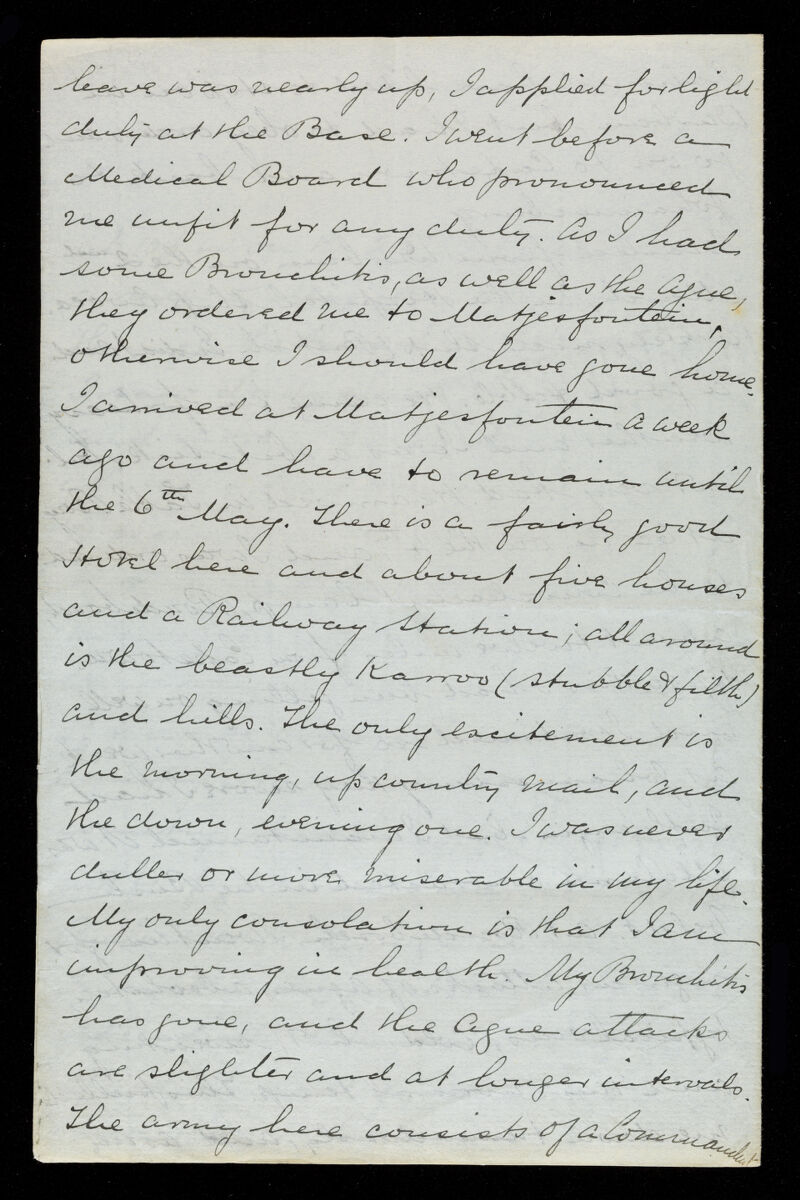 leave was nearly up, I applied for light
duty at the Base. I went before a
Medical Board who pronounced
me unfit for any duty. As I had
some Bronchitis, as well as the Ague,
they ordered me to Matjesfontein,
otherwise I should have gone home.
I arrived at Matjesfontein a week
ago and have to remain until
the 6th May. There is a fairly good
Hotel here and about five houses
and a Railway Station; all around
is the beastly Karroo (stubble & filth)
and hills. The only excitement is
the morning, up country mail, and
the down, evening one. I was never
duller or more miserable in my life.
My only consolation is that I am
improving in health. My Bronchitis
has gone, and the Ague attacks
are slighter and at longer intervals.
The army here consists of a Commandant